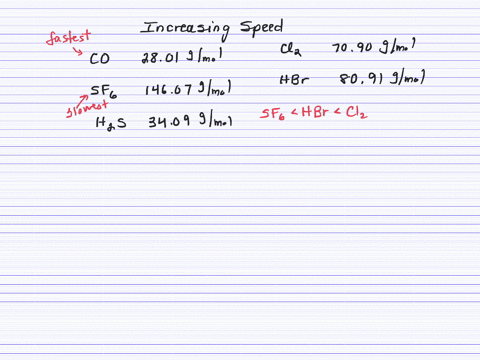 Increasing Speed
fastest
CO 28.01 g/mol
Cl2 70.90 g/mol
SF6 146.07 g/mol
HBr 80.91 g/mol
slowest
H2S 34.09 g/mol
SF6 < HBr < Cl2